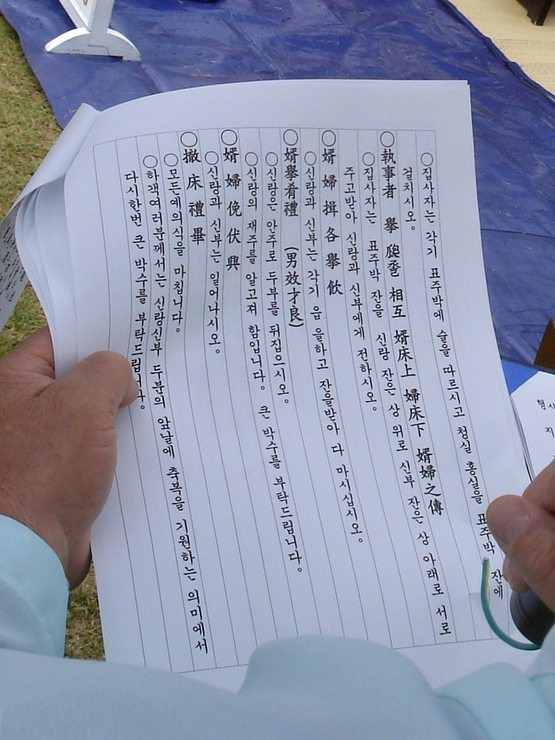 ○집사자는 각기 표주박에 술을 따르시고 청실 홍실을 표주박 잔에
걸치시오.
○執事者 擧 巹盃 相互 婿床上 婦床下 婿婦之傳
○집사자는 표주박 잔을 신랑 잔은 상 위로 신부 잔은 상 아래로 서로
주고받아 신랑과 신부에게 전하시오.
○婿婦揖各擧飮
○신랑과 신부는 각기 읍 을하고 잔을받아 다 마시십시오.
○婿擧肴禮 (男效才良)
○신랑은 안주로 두부를 뒤집으시오.
○신랑의 재주를 알고져 함입니다. 큰 박수를 부탁드립니다.
○婿婦俛伏興
○신랑과 신부는 일어나시오.
○撤床禮畢
○모든예의식을 마칩니다.
○하객여러분께서는 신랑신부 두분의 앞날에 축복을 기원하는 의미에서
다시한번 큰 박수를 부탁드립니다.